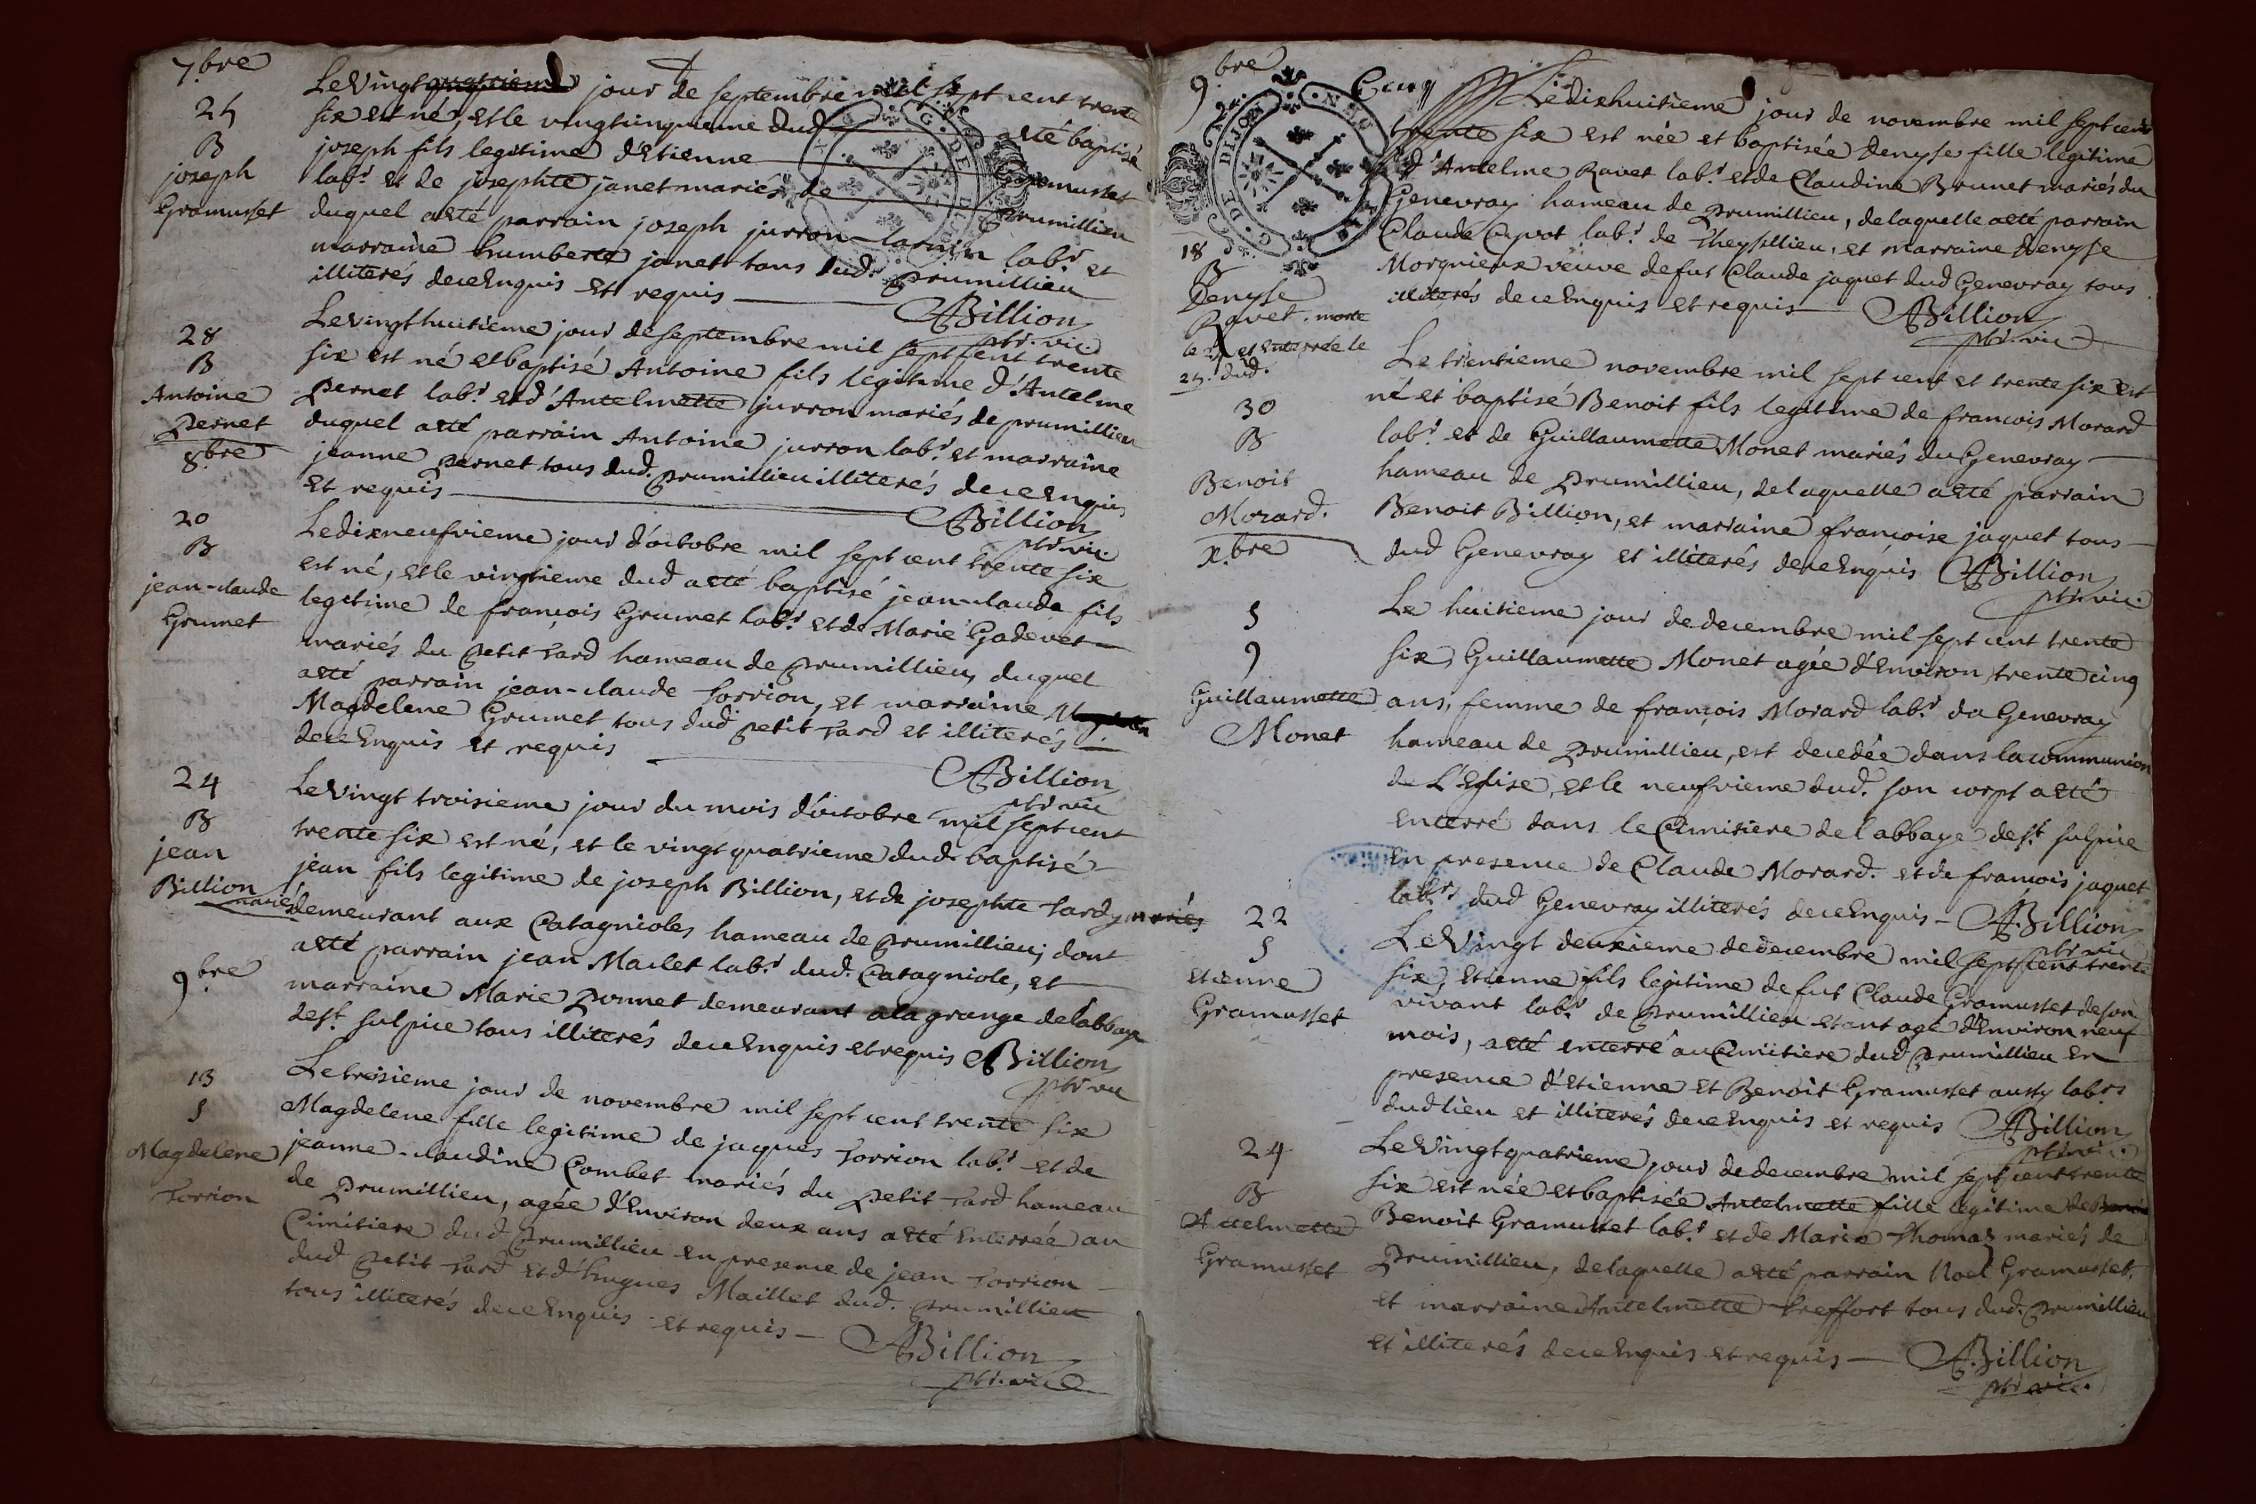 7.bre
25
B
joseph
Gramusset
Le Vingt jour de septembre mil sept cent trente
six est né, et le vingtcinquieme dud. a eté baptisé
joseph fils legitime d'Etienne Gramusset
labr. et de josephte janet mariés de Prumillieu
duquel a eté parrain joseph jurron labr. et
marraine humberte janet tous dud. Prumillieu
illiterés de ce Enquis et requis
Billion
ptr. vic.
28
B
Antoine
Pernet
Le vingt huitieme jour de septembre mil sept cent trente
six est né et baptisé Antoine fils legitime d'Antelme
Pernet labr. et d'Antelmette jurron mariés de prumillieu
duquel a eté parrain Antoine jurron labr. et marraine
jeanne Pernet tous dud. Prumillieu illiterés de ce Enquis
et requis
Billion
ptr. vic.
8.bre
20
B
jean-claude
Grumet
Le dixneufvieme jour d'octobre mil sept cent trente six
est né, et le vingtieme dud a eté baptisé jean-claude fils
legitime de françois Grumet labr. et de Marie Gadevet
mariés du Petit Tard hameau de Prumillieu, duquel
a eté parrain jean-claude Torrion, et marraine
Magdelene Grumet tous dud Petit Tard et illiterés
de ce Enquis et requis
Billion
ptr vic
24
B
jean
Billion
Le Vingt troisieme jour du mois d'octobre mil sept cent
trente six est né, et le vingt quatrieme dud. baptisé
jean fils legitime de joseph Billion, et de josephte Tardy mariés
mariés demeurant aux Catagnioles hameau de Prumillieu; dont
a eté parrain jean Mailet labr. dud. Catagniole, et
marraine Marie Ponnet demeurant a la grange de l'abbaye
de st. sulpice tous illiterés de ce Enquis et requis Billion
ptr vic
9.bre
13
S
Magdelene
Torrion
Le treisieme jour de novembre mil sept cent trente six
Magdelene fille legitime de jaques Torrion labr. et de
jeanne-claudine Combet mariés du Petit Tard hameau
de Prumillieu, agée d'Environ deux ans a eté Enterrée au
Cimitiere dud Prumillieu en presence de jean Torrion
dud Petit Tard et d'hugues Maillet dud. Prumillieu
tous illiterés de ce Enquis et requis
Billion
ptr. vic
9.bre
Cinq
18
B
Denyse
Ravet. morte
le 24 et Enterrée le
25. dud.
Le dixhuitieme jour de novembre mil sept cent
trente six est née et baptisée Denyse fille legitime
d'Antelme Ravet labr. et de Claudine Brunet mariés du
Genevray hameau de Prumillieu, de laquelle a eté parrain
Claude Cyvot labr. de Cheysllieu, et marraine Denyse
Morgnieux veuve de fut Claude jaquet dud Genevray tous
illiterés de ce Enquis et requis Billion
ptr. vic
30
B
Benoit
Morard.
Le trentieme novembre mil sept cent et trente six est
né et baptisé Benoit fils legitime de francois Morard
labr. et de Guillaumette Monet mariés du Genevray
hameau de Prumillieu, de laquelle a eté parrain
Benoit Billion, et marraine francoise jaquet tous
dud Genevray et illiterés de ce Enquis Billion
ptr. vic.
x.bre
S
9
Guillaumette
Monet
Le huitieme jour de decembre mil sept cent trente
six, Guillaumette Monet agée d'Environ trente cinq
ans, femme de françois Morard labr. du Genevray
hameau de Prumillieu, est decedée dans la communion
de L'Eglise, et le neufvieme dud. son corpt a eté
enterré dans le Cimitiere de l'abbaye de st. sulpice
en presence de Claude Morard. et de francois jaquet
labrs dud Genevray illiterés de ce Enquis Billion
ptr vic
22
S
Etienne
Gramusset
Le Vingt deuxieme de decembre mil sept cent trente
six, Etienne fils legitime de fut Claude Gramusset de son
vivant labr. de Prumillieu etant agé d'Environ neuf
mois, a eté enterré au Cimitiere dud Prumillieu en
presence d'Etienne et Benoit Gramusset aussy labrs
dud lieu et illiterés de ce Enquis et requis Billion
ptr. vic.
24
B
Antelmette
Gramusset
Le Vingt quatrieme jour de decembre mil sept cent trente
six est née et baptisée Antelmette fille legitime de
Benoit Gramusset labr. et de Marie Thomas mariés de
Prumillieu, de laquelle a eté parrain Noel Gramusset.
et marraine Antelmette Treffort tous dud. Prumillieu
et illiterés de ce Enquis et requis Billion
ptr vic.